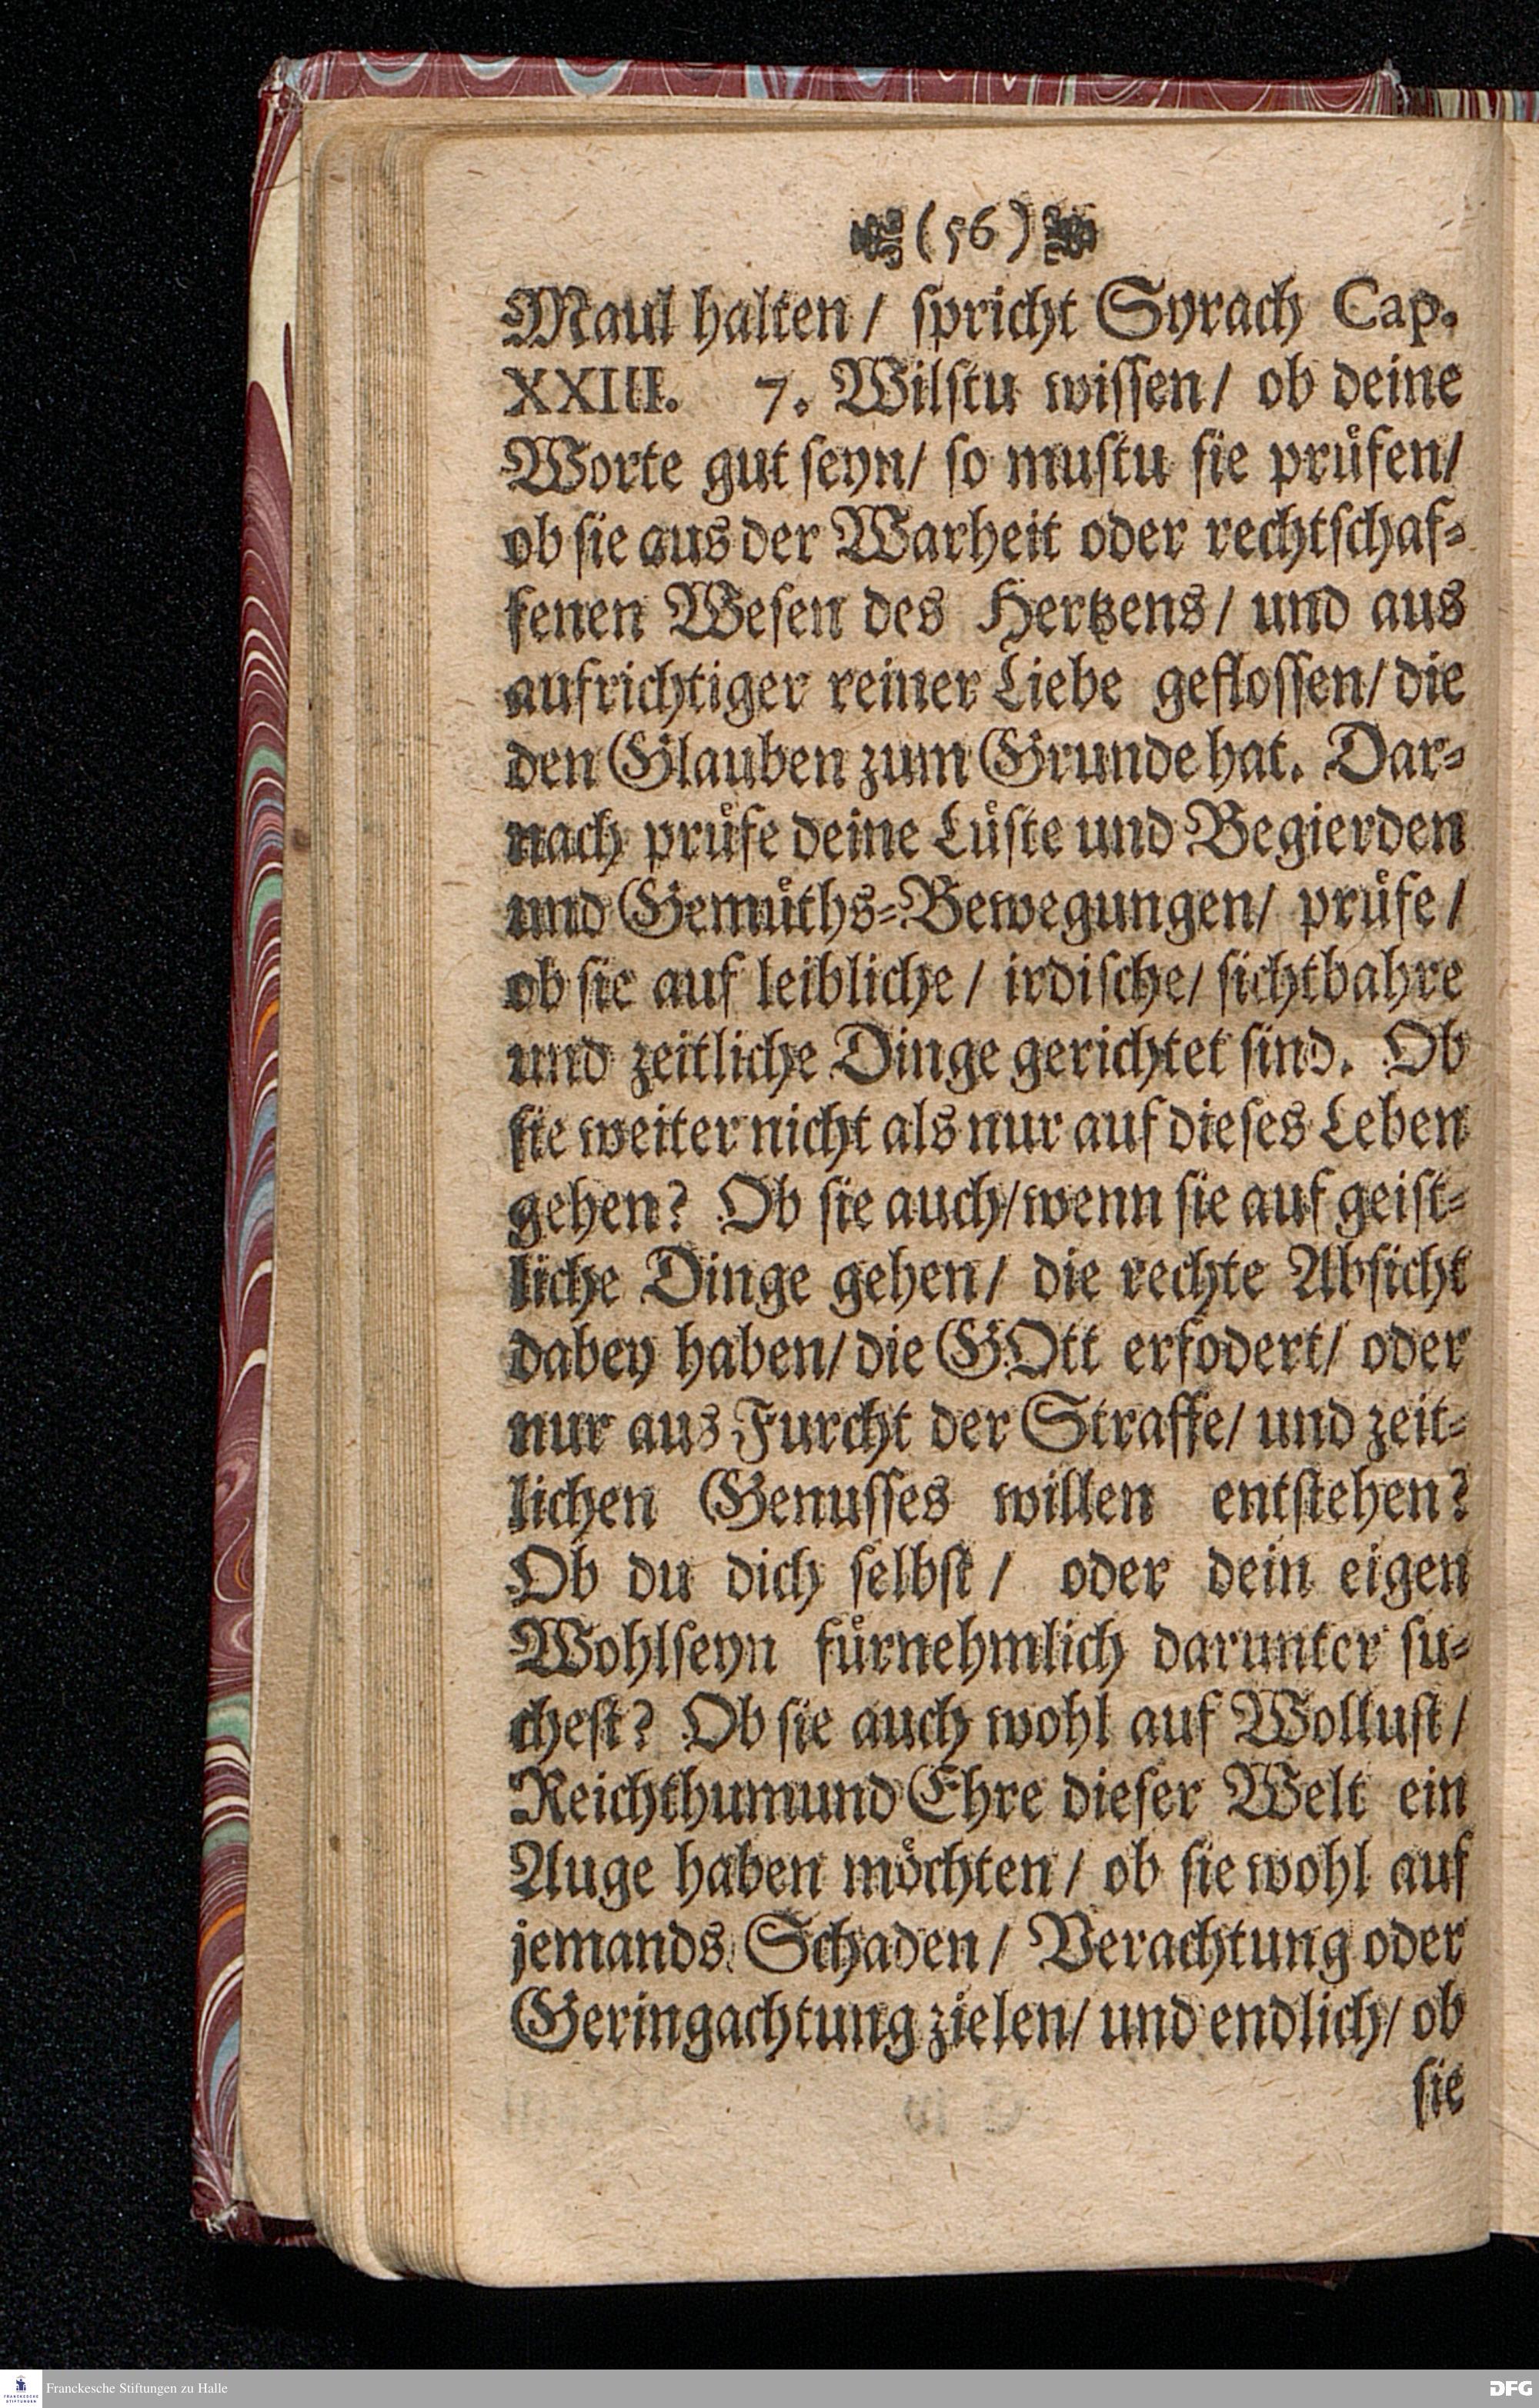 (56)
Maul halten/ ſpricht Syrach Cap.
XXIII. 7. Wilſtu wiſſen/ ob deine
Worte gut ſeyn/ ſo muſtu ſie pruͤfen/
ob ſie aus der Warheit oder rechtſchaf⸗
fenen Weſen des Hertzens/ und aus
aufrichtiger reiner Liebe gefloſſen/ die
den Glauben zum Grunde hat. Dar⸗
nach pruͤfe deine Luͤſte und Begierden
und Gemuͤths⸗Bewegungen/ pruͤfe/
ob ſie auf leibliche/ irdiſche/ ſichtbahre
und zeitliche Dinge gerichtet ſind. Ob
ſie weiter nicht als nur auf dieſes Leben
gehen? Ob ſie auch/ wenn ſie auf geiſt⸗
liche Dinge gehen/ die rechte Abſicht
dabey haben/ die GOtt erfodert/ oder
nur aus Furcht der Straffe/ und zeit⸗
lichen Genuſſes willen entſtehen?
Ob du dich ſelbſt/ oder dein eigen
Wohlſeyn fuͤrnehmlich darunter ſu⸗
cheſt? Ob ſie auch wohl auf Wolluſt/
Reichthumund Ehre dieſer Welt ein
Auge haben moͤchten/ ob ſie wohl auf
jemands Schaden/ Verachtung oder
Geringachtung zielen/ und endlich/ ob
ſie
Franckesche Stiftungen zu Halle
DFG